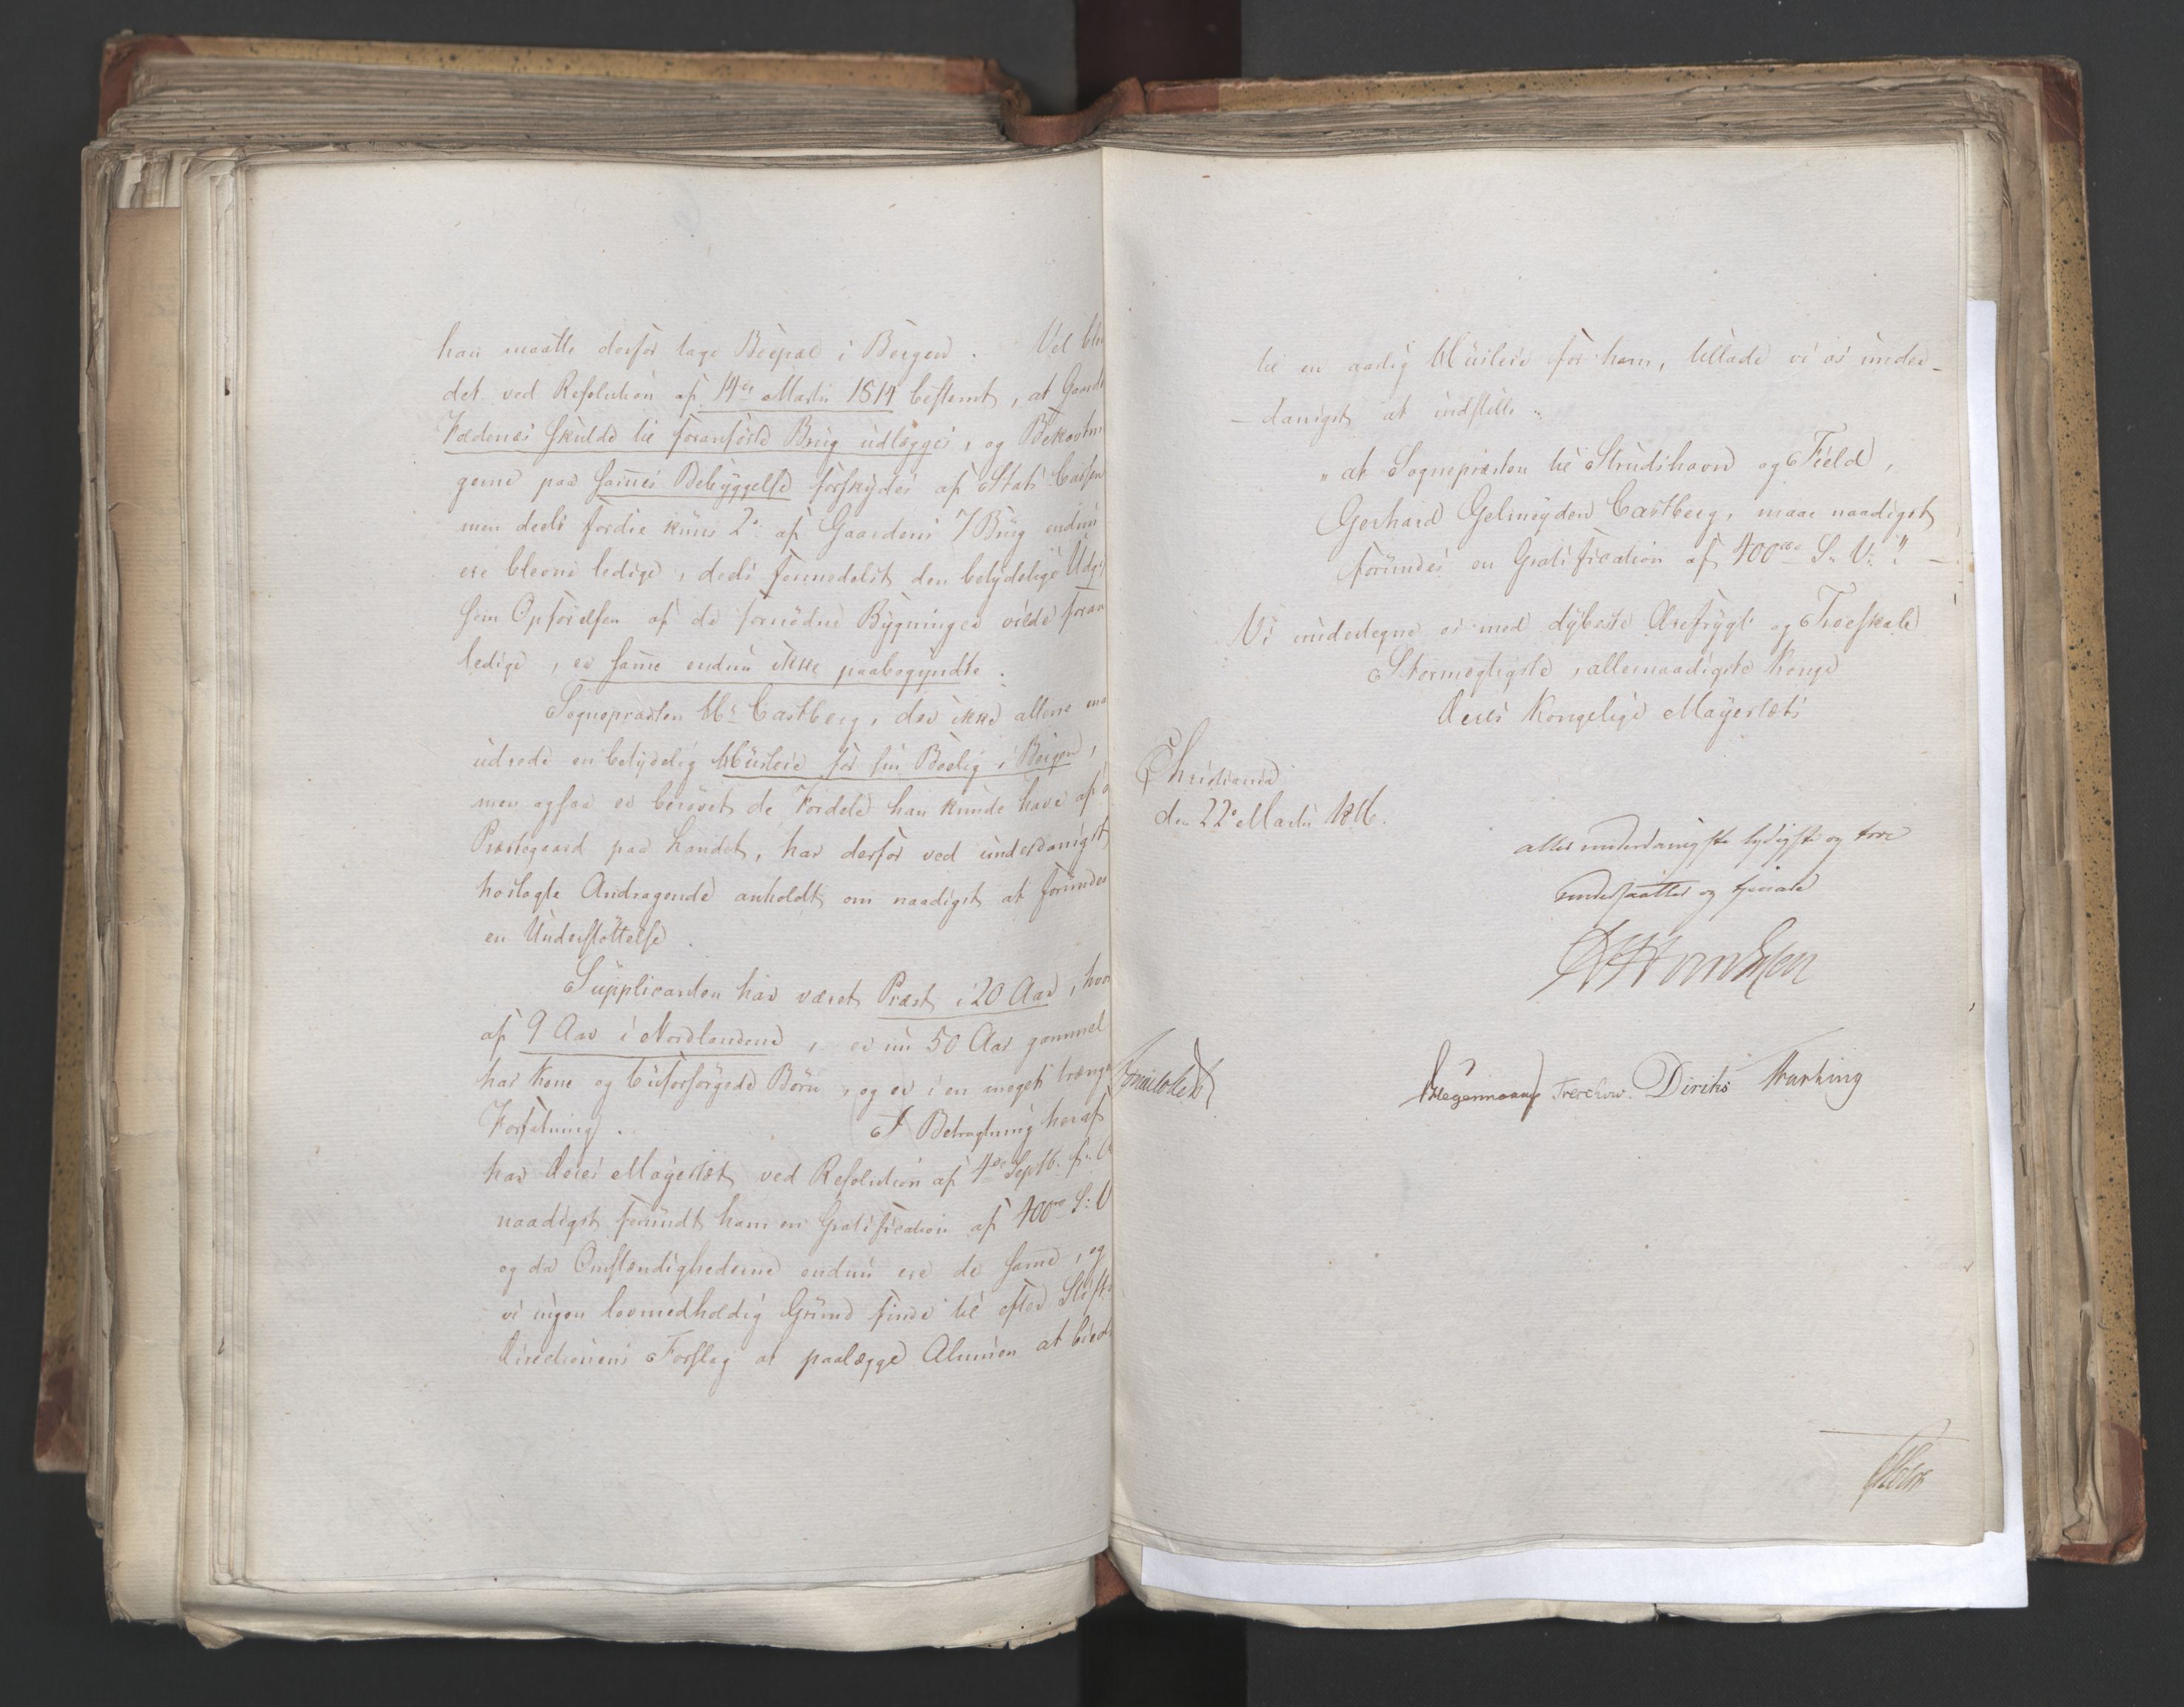 han maatte derfor tage Boepæl i Bergen. Vel ble
det ved Resolution af 14de Martii 1814 bestemt, at Gaard
Fædenæs skulde til foranførte Brug udlægges, og Bekostni
gerne paa sammes Bebyggelse forskydes af Stats Cassen
men deels fordie kuns 2de af Gaardens 7 Brug endnu
ere blevne ledige, deels formedelst den betydelige Udg
som Opførelsen af de fornødne Bygninger vilde foran
ledige, er samme endnu ikke paabegyndte.
Sognepræsten Hr Castberg, der ikke allene maa
udrede en betydelig Huusleie for sin Boelig i Bergen,
men ogsaa er berøvet de Fordele han kunde have af
Præstegaard paa Landet, har derfor ved underdanigst
hoslagte Andragende anholdt om naadigst at forundes
en Understøttelse.
Supplicanten har været Præst i 20 Aar, hvor
af 9 Aar i Nordlandene, er nu 50 Aar gammel
har Kone og 6 uforsørgede Børn, og er i en meget trænge
Forfatning. I Betragtning heraf
har Deres Mayestæt ved Resolution af 4de Septb. f. A
naadigst forundt ham en Gratification af 400 rd S: V
og da Omstændighederne endnu ere de samme, og
vi ingen lovmedholdig Grund finde til efter Stifts
Directionens Forslag at paalægge Almuen at bied
til en aarlig Huusleie for ham, tillade vi os under-
-danigst at indstille:
"at Sognepræsten til Strudshavn og Field,
Gerhard Gelmeyden Castberg, maae naadigst
forundes en Gratification af 400 rd S. V."
Vi undertegne os med dybeste Ærefrygt og Troeskab
Stormægtigste, allernaadigste Konge
Deres Kongelige Mayestæts
Christiania
den 22de Martii 1816.
allerunderdanigste lydigste og troe
undersaatter og tjenere
M Sommerhielm
Hegermann Treschow. Diriks Krefting
Holst